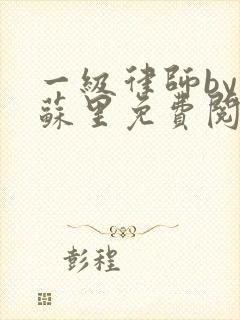 一級律師by
蘇里免費閱
彭程